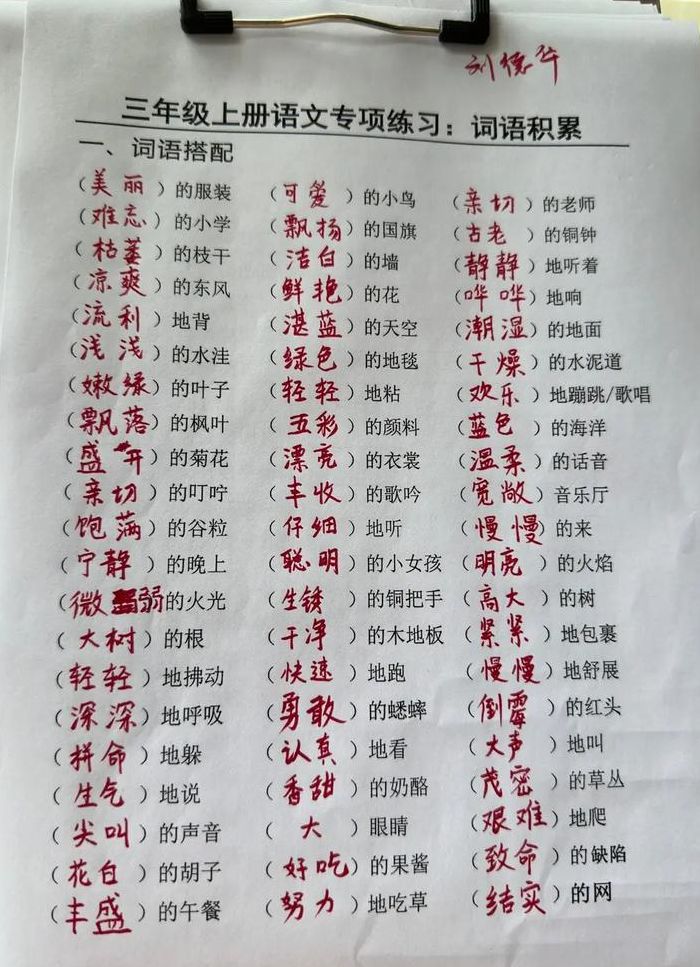 刘德华
三年级上册语文专项练习：词语积累
一、词语搭配
（美丽）的服装 （可爱）的小鸟 （亲切）的老师
（难忘）的小学 （飘扬）的国旗 （古老）的铜钟
（枯萎）的枝干 （洁白）的墙 （静静）地听着
（凉爽）的东风 （鲜艳）的花 （哗哗）地响
（流利）地背 （湛蓝）的天空 （潮湿）的地面
（浅浅）的水洼 （绿色）的地毯 （干燥）的水泥道
（嫩绿）的叶子 （轻轻）地粘 （欢乐）地蹦跳/歌唱
（飘落）的枫叶 （五彩）的颜料 （蓝色）的海洋
（盛开）的菊花 （漂亮）的衣裳 （温柔）的话音
（亲切）的叮咛 （丰收）的歌吟 （宽敞）音乐厅
（饱满）的谷粒 （仔细）地听 （慢慢）的来
（宁静）的晚上 （聪明）的小女孩 （明亮）的火焰
（微弱的火光 （生锈）的铜把手 （高大）的树
（大树）的根 （干净）的木地板 （紧紧）地包裹
（轻轻）地拂动 （快速）地跑 （慢慢）地舒展
（深深）地呼吸 （勇敢）的蟋蟀 （倒霉）的红头
（拼命）地躲 （认真）地看 （大声）地叫
（生气）地说 （香甜）的奶酪 （茂密）的草丛
（尖叫）的声音 （大）眼睛 （艰难）地爬
（花白）的胡子 （好吃）的果酱 （致命）的缺陷
（丰盛）的午餐 （努力）地吃草 （结实）的网